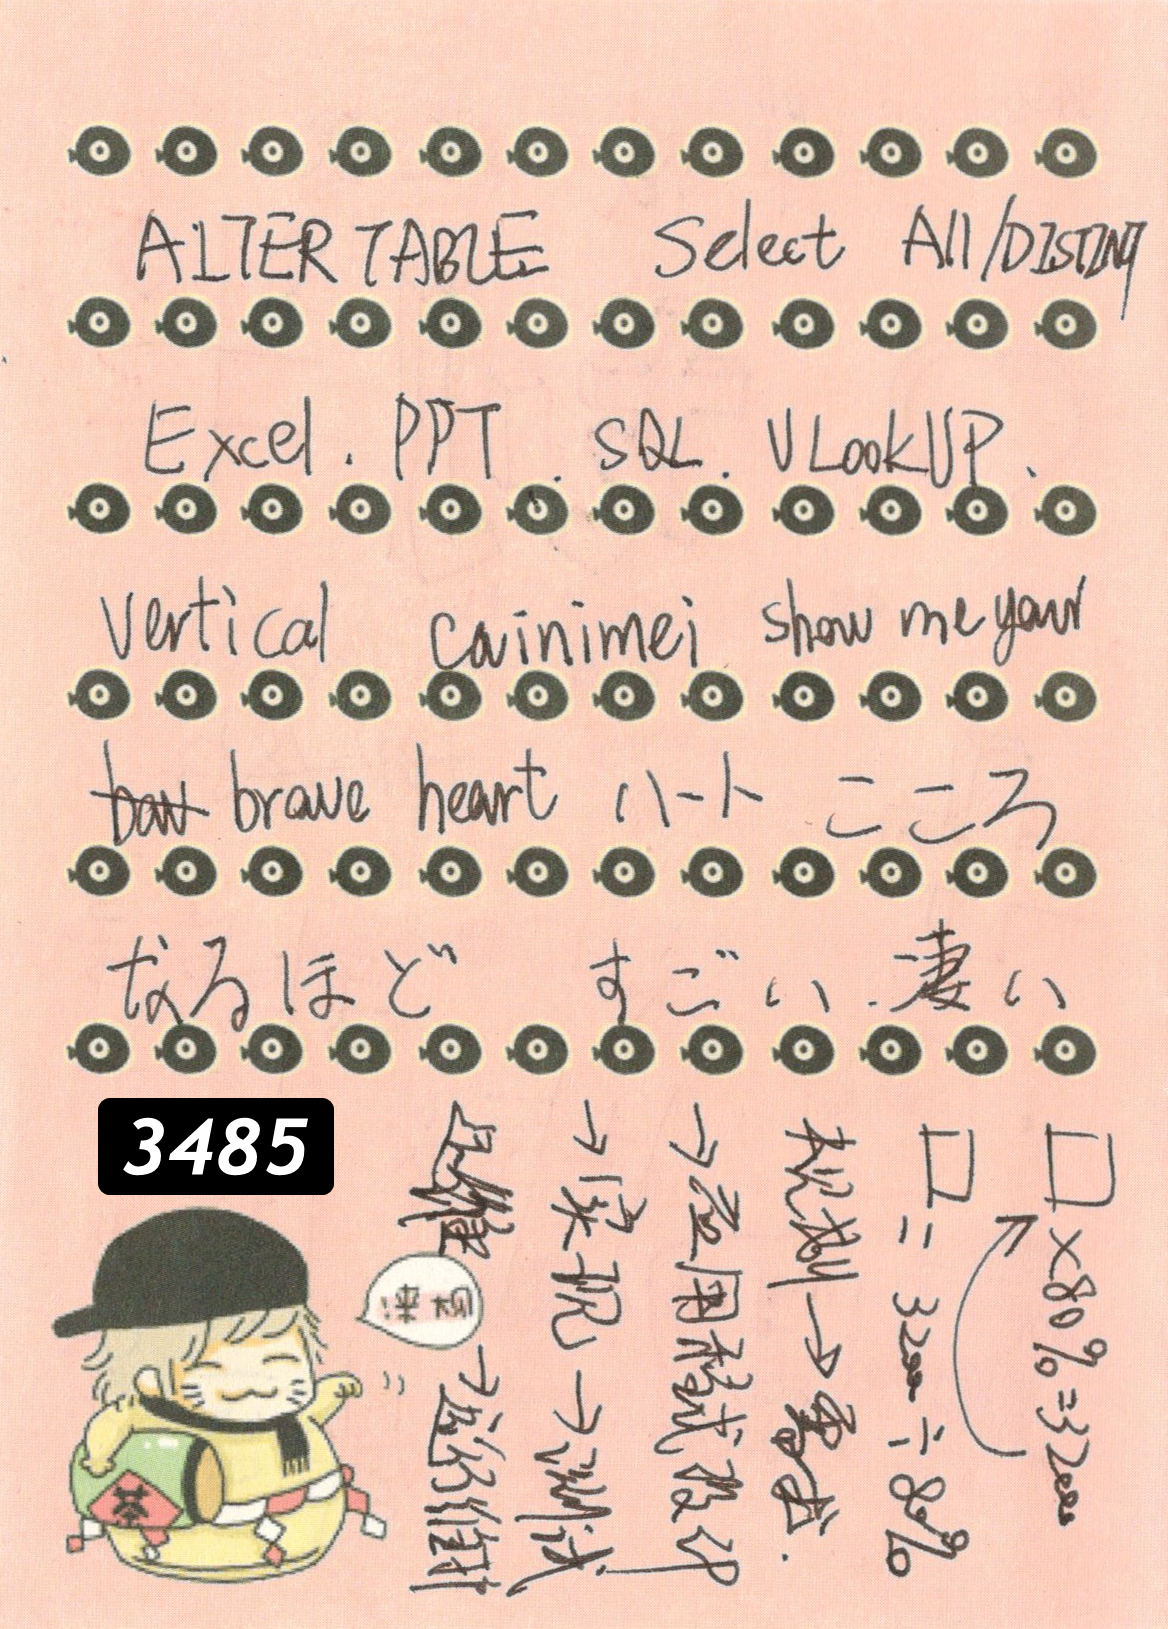 ALTER TABLE Select All/DISTINT
Excel. PPT. SQL. VLookUP.
vertical cainimei show me your
brave heart ハート こころ
なるほど すごい.凄い
3485
□×80%=32000
□=32000÷80%
规划→需求.
→应用概试设计
→实现→测试
→运行维护